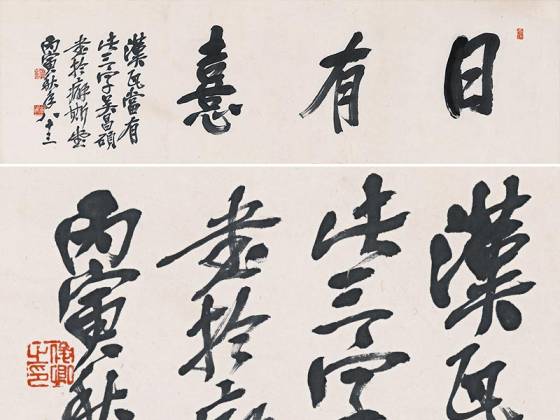 日有憙
漢瓦當有
此三字吴昌碩
書於癖斯堂
丙寅秋年八十三
漢瓦
此三字
書於
丙寅秋
俊卿之印